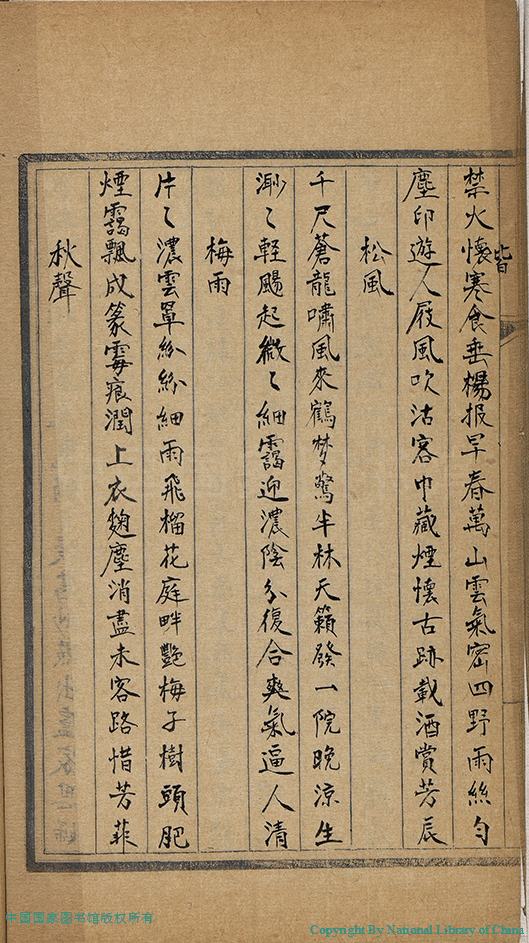 皆
禁火懷寒食垂楊报早春萬山雲氣密四野雨絲匀
塵印遊人屐風吹沽客巾藏煙懷古跡載酒賞芳辰
松風
千尺蒼龍嘯風來鶴梦驚半林天籟發一院晚涼生
渺〻輕颺起微〻細靄迎濃陰分復合爽氣逼人清
梅雨
片〻濃雲罩紛紛細雨飛榴花庭畔艷梅子樹頭肥
煙靄飄成篆霉痕潤上衣麴塵消盡未客路惜芳菲
秋聲
中国国家图书馆版权所有
Copyright By National Library of China